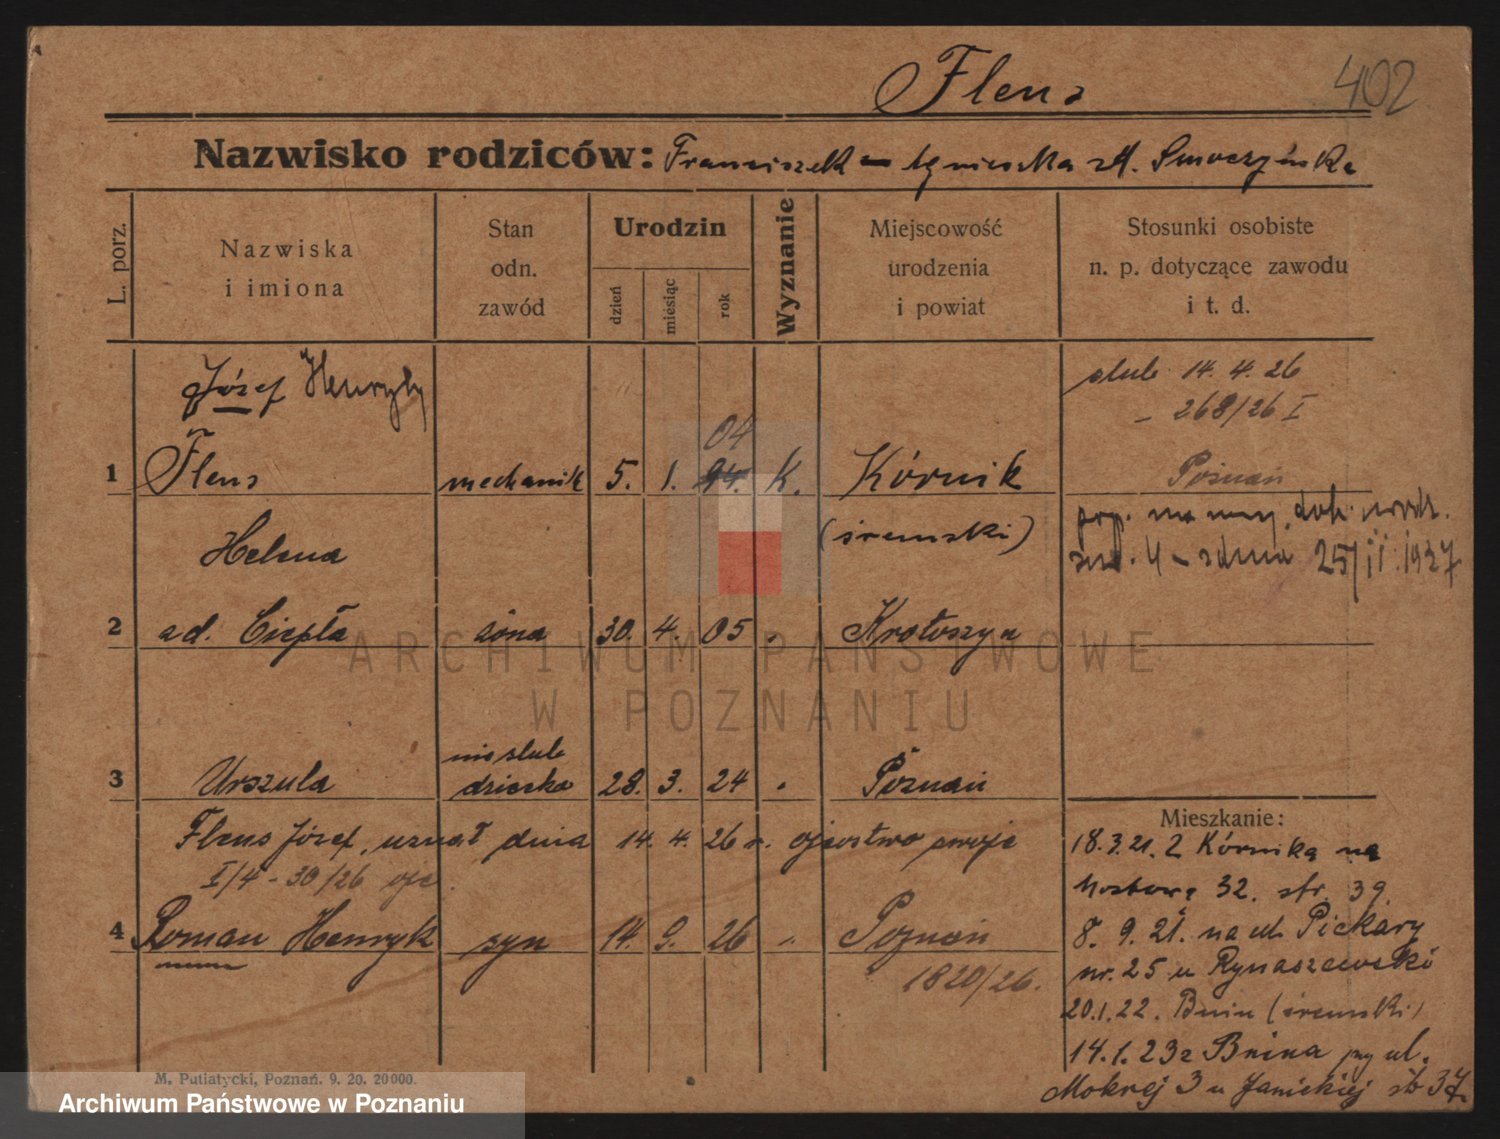 Flens 402
Nazwisko rodziców: Franciszek – Agnieszka zd. Smoczyńska
L. porz.
Nazwiska
i imiona
Stan
odn.
zawód
Urodzin
dzień
miesiąc
rok
Wyznanie
Miejscowość
urodzenia
i powiat
Stosunki osobiste
n. p. dotyczące zawodu
i t. d.
Józef Henryk
ślub 14. 4. 26
– 268/26 I
04
1 Flens mechanik 5. 1. 94. K. Kórnik Poznań
(śremski)
25/II. 1927
Helena
2 zd. Ciepła żona 30. 4. 05 " Krotoszyn
nieślub
3 Urszula dziecko 28. 3. 24 " Poznań
Flens Józef, uznał dnia 14. 4. 26 r. ojcostwo swoje
I/4 - 30/26
4 Roman Henryk syn 14. 9. 26 " Poznań
1820/26.
Mieszkanie:
18.3.21. z Kórnika na
Mostową 32. str. 39.
8. 9. 21. na ul. Piekary
nr. 25 u Rynaszewski
20.1.22. Bnin (śremski)
14.1.23 z Bnina przy ul.
Mokrej 3 u Janickiej str 37.
M. Putiatycki, Poznań. 9. 20. 20000.
ARCHIWUM PAŃSTWOWE
W POZNANIU
Archiwum Państwowe w Poznaniu